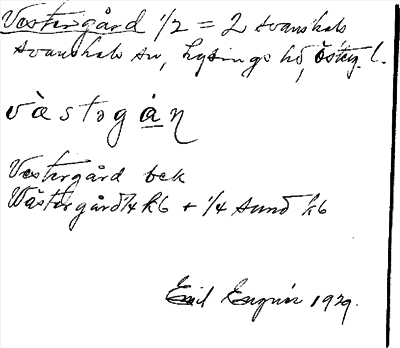 Västergård 1/2 = 2 Svanshals
Svanshals sn, Lysings hd, Östg. l.
västəgån
Västergård bek
Wästergård 1/4 kb + 1/4 Sund kb
Emil 1929.